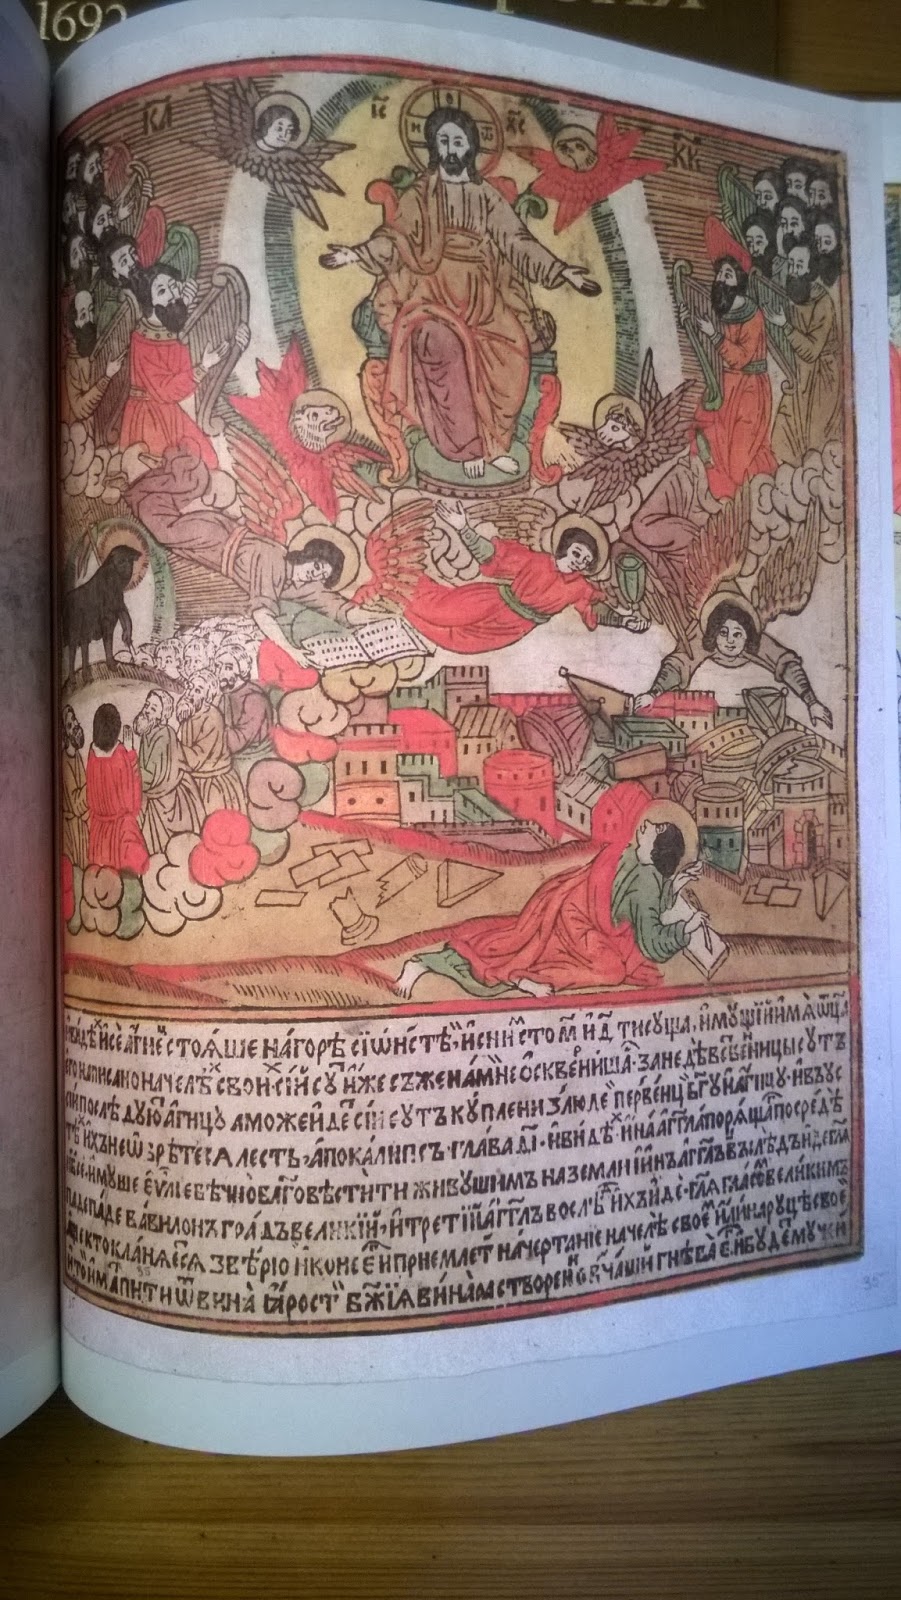 1692
КЛ
ІС
ХС
КК
видѣ и се агнец стоꙗше на горѣ сиѡнстѣ и с ним сто м и д тисуща, имущїи имꙗ ѡтца
его написано на челѣх своих сїи сут иже съ женами не осквернишасꙗ зане дѣвственицы сутъ
послѣдуют агнцу аможе идет сїи сутъ куплени з людей первенцы богу и агнцу и въ ус
тѣх ихъ не ѡзрѣтесꙗ лесть, апокалипсъ глава ді и видѣх инаго аггла парꙗща посредѣ
имуще еѵлїе вѣчно благовѣстити живущимъ на земли и инъ агглъ въслѣдъ иде глꙗ
паде паде вавилонъ градъ великїй, и третїй агглъ вослѣд ихъ иде глꙗ гласом великимъ
аще кто кланꙗется звѣрю и иконе его и приемлет начертанїе на челѣ своем или на руцѣ своей
и той имать пити ѡт вина ꙗрости божїꙗ вина растворенна в чаши гнѣва его и будет мучен
35
35